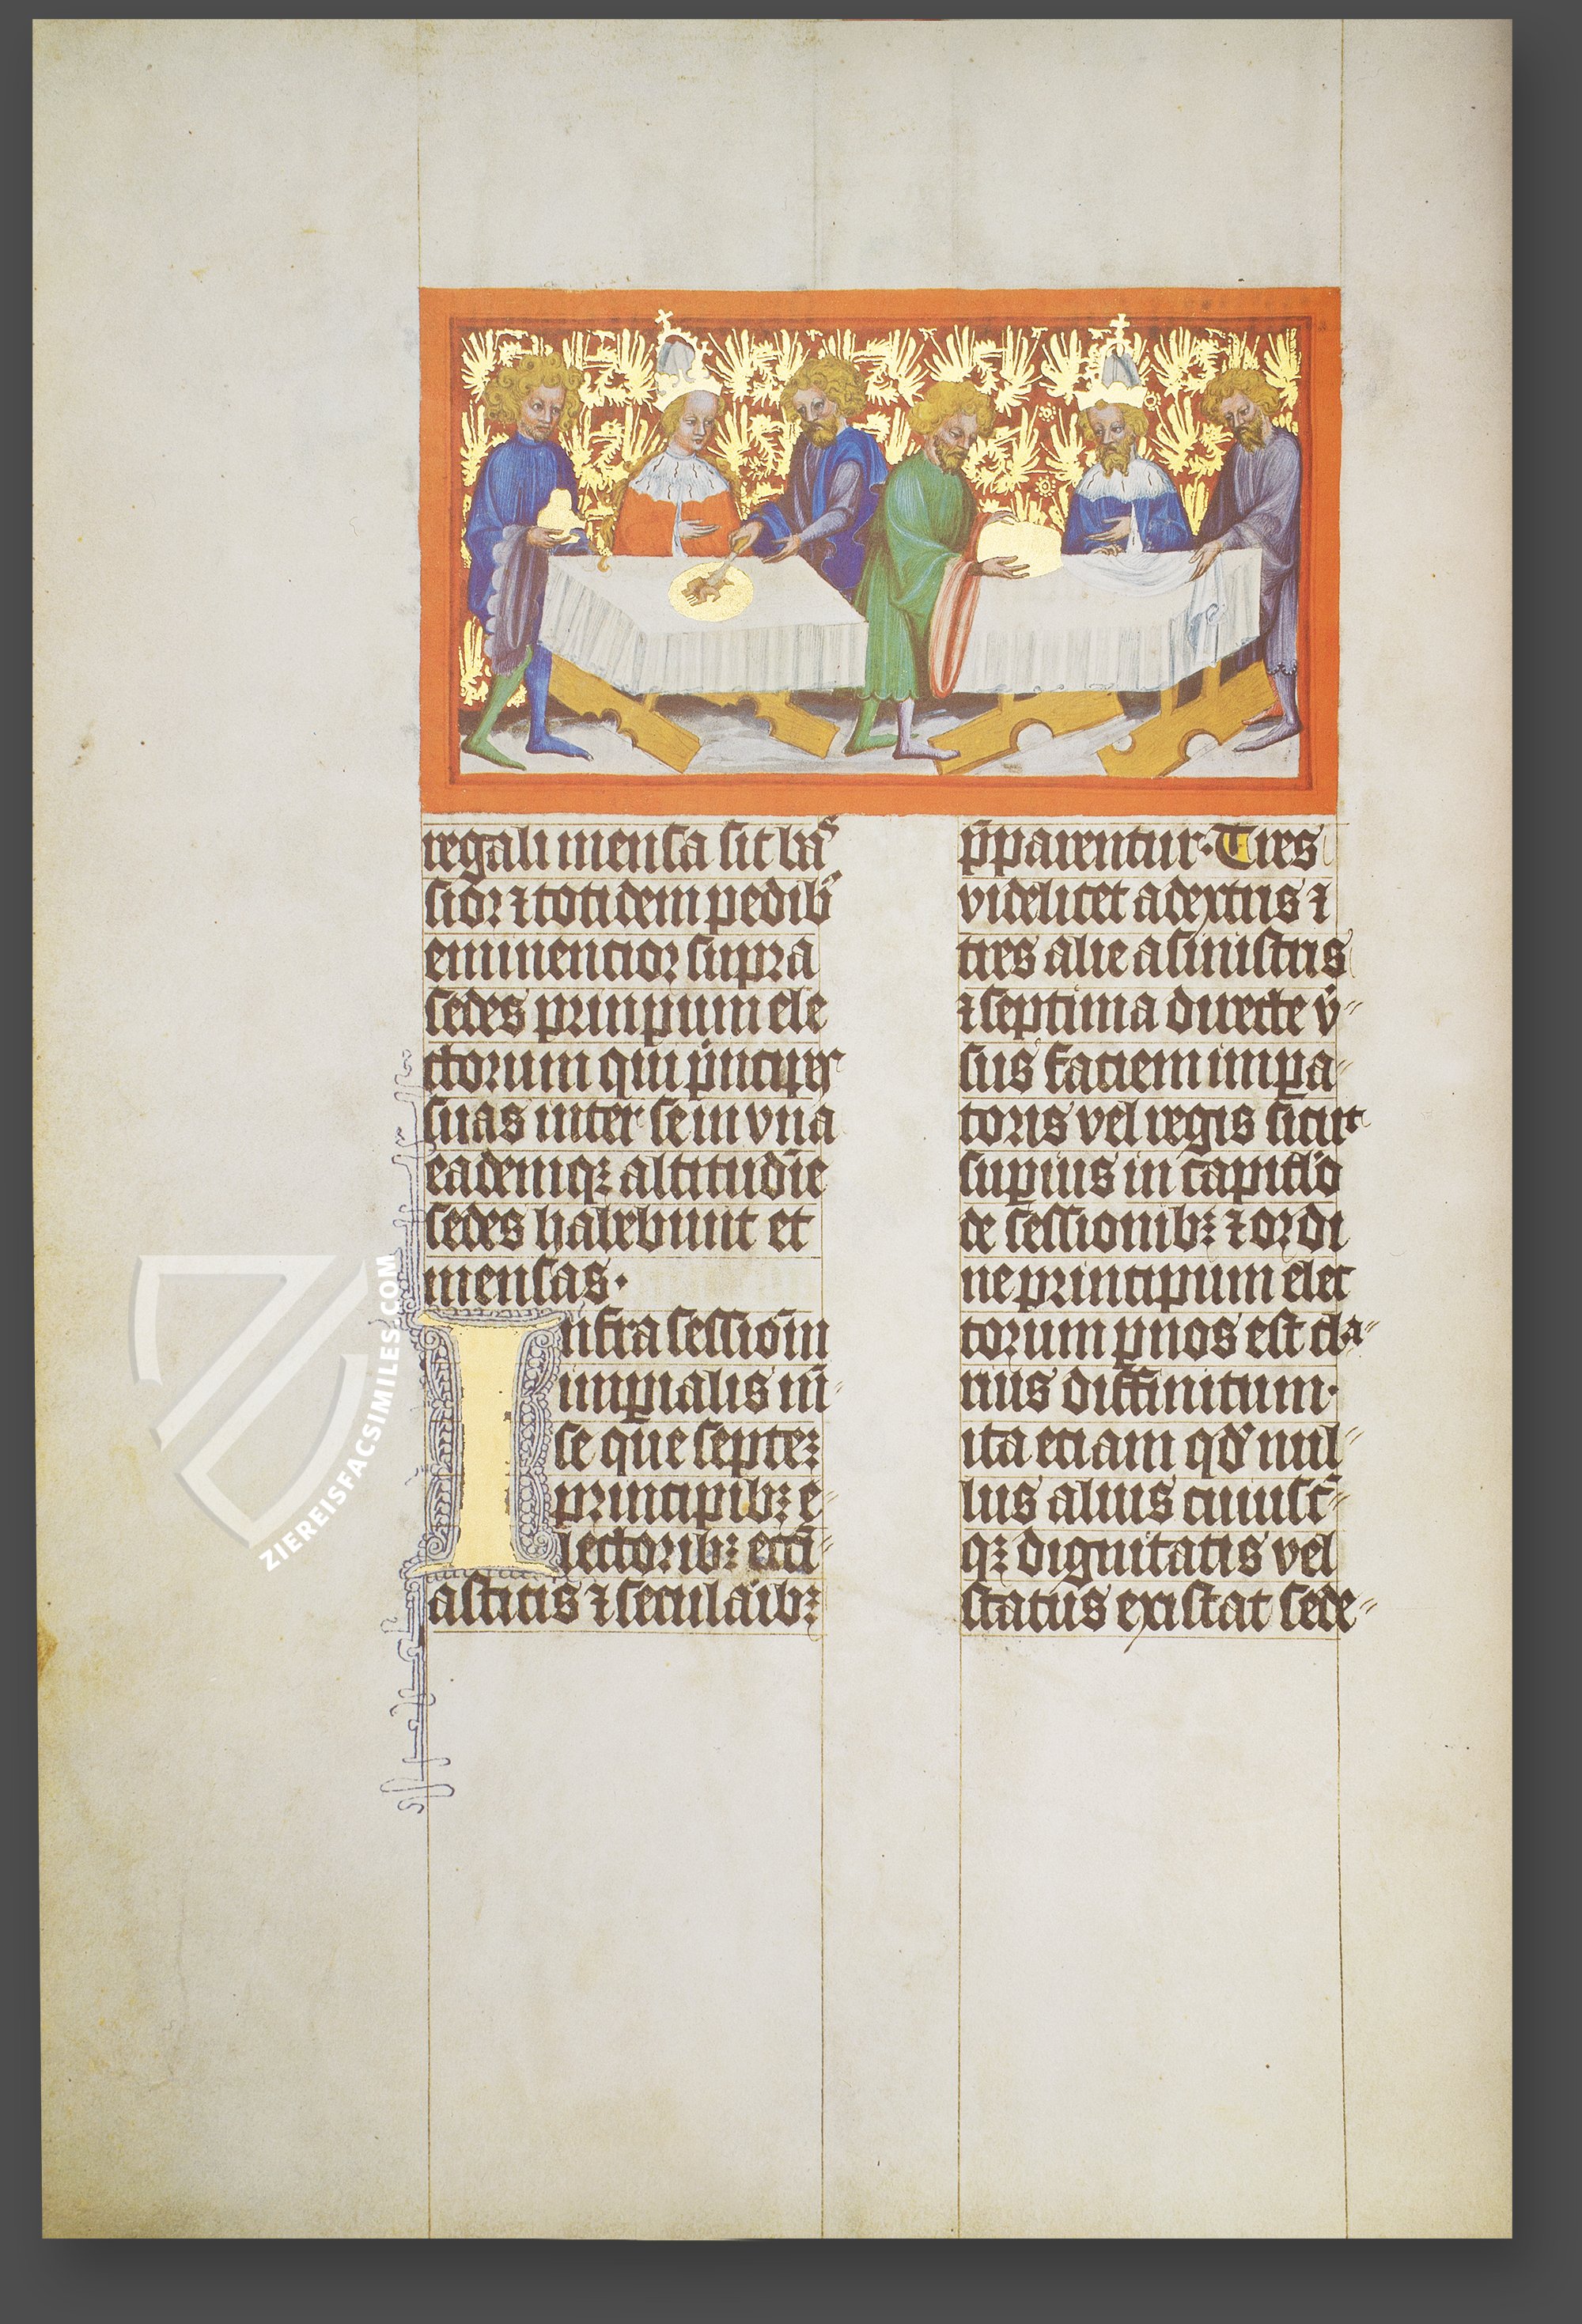 regali mensa sit baſ
sior ⁊ totidem pedib᷒
eminencior supra
sedes prinpium ele
ctorum qui p̈ncipꝫ
suas inter se in vna
eademqꝫ altitudīe
sedes habebunt et
mensas·
Infra sessioīn
imꝑialis m̄
se que septeꝫ
principibꝫ e
lectoribꝫ ecc̄i
asticis ⁊ seculaībꝫ
p̄parentur· Tres
videlicet a dextris ⁊
tres alie a sinistris
⁊ septima directe v̓
sus faciem imꝑa
toris vel regis sicut
suꝑius in capitl̓o
de sessionibꝫ ⁊ ordi
ne principum elec
torum ꝑ nos est cla
rius diffinitum·
ita etiam qd̓ nul
lus alius cuiusc̄
qꝫ dignitatis vel
status existat sede
ZIEREISFACSIMILES.COM